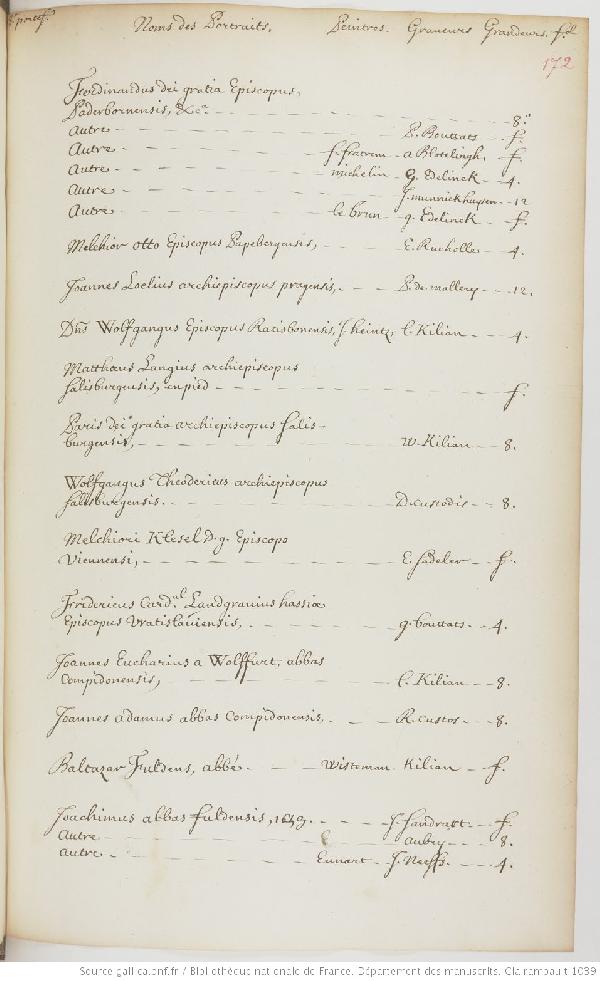 portef. Noms des Portraits. Peintres. Graveurs Grandeurs. f.t
172
Ferdinandus dei gratia Episcopus,
Paderbornensis, &c.a 8.o
Autre P. Bouttats f.
Autre f. fratrem a Blotelingh. f.
Autre michelin G. Edelinck 4.
Autre J. munnickhuysen 12
Autre le brun g. Edelinck f.
Melchior otto Episcopus Papebergensis, E. Rucholle 4.
Joannes Loelius archiepiscopus pragensis, P. de mallery 12.
Dns Wolfgangus Episcopus Ratisbonensis, J. heintz, l. Kilian 4.
Matthaeus Langius archiepiscopus
salisburgensis, en pied f.
Paris dei gratia archiepiscopus salis-
burgensis, w. Kilian 8.
Wolfgangus Theodericus archiepiscopus
salisburgensis. D. custodis 8.
Melchiori Klesel D. g. Episcopo
Viennensi, E. sadeler f.
Fridericus Card.al Landgravius hassiae
Episcopus Vratislaviensis, g. bouttats 4.
Joannes Eucharius a Wolffurt, abbas
Compidonensis, l. Kilian 8.
Joannes adamus abbas Compidonensis, R. custos 8.
Baltazar Fuldens, abbé wisteman Kilian f.
Joachimus abbas fuldensis, J. sandratt f.
Autre Aubry 8.
autre Eunart J. Neefs 4.
Source gallica.bnf.fr / Bibliothèque nationale de France. Département des manuscrits. Clairambault 1039